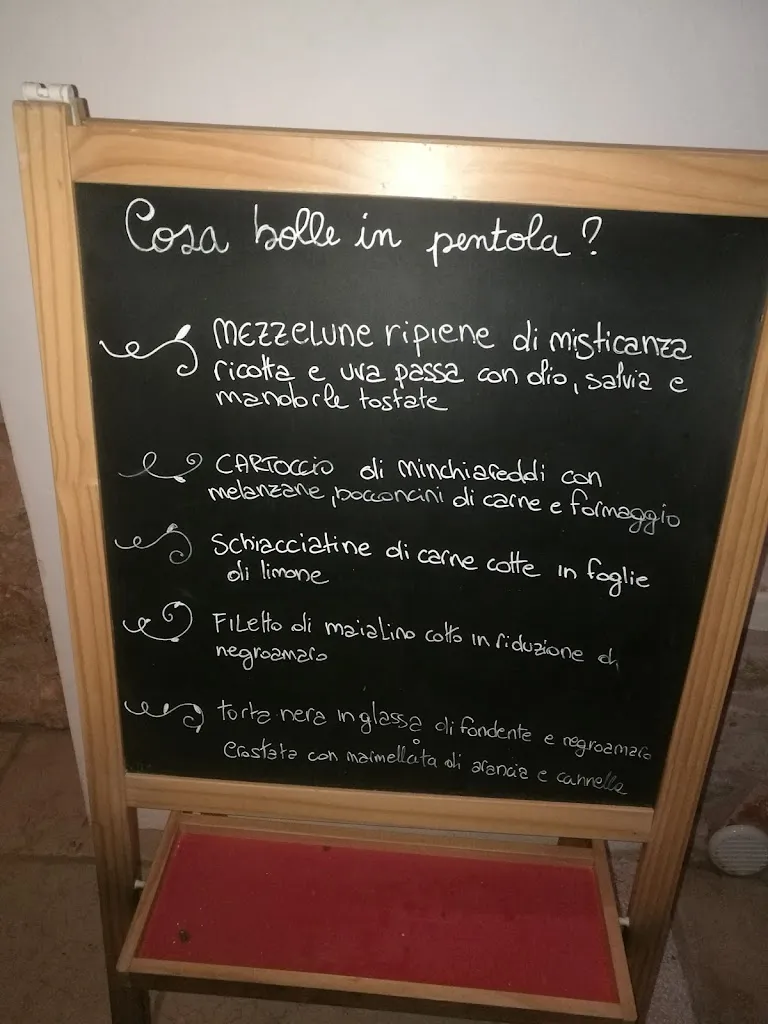 Cosa bolle in pentola?
MEZZELUNE ripiene di misticanza
ricotta e uva passa con olio, salvia e
mandorle tostate
CARTOCCIO di minchiareddi con
melanzane, bocconcini di carne e formaggio
Schiacciatine di carne cotte in foglie
di limone
Filetto di maialino cotto in riduzione di
negroamaro
torta nera in glassa di fondente e negroamaro
o
crostata con marmellata di arancia e cannella